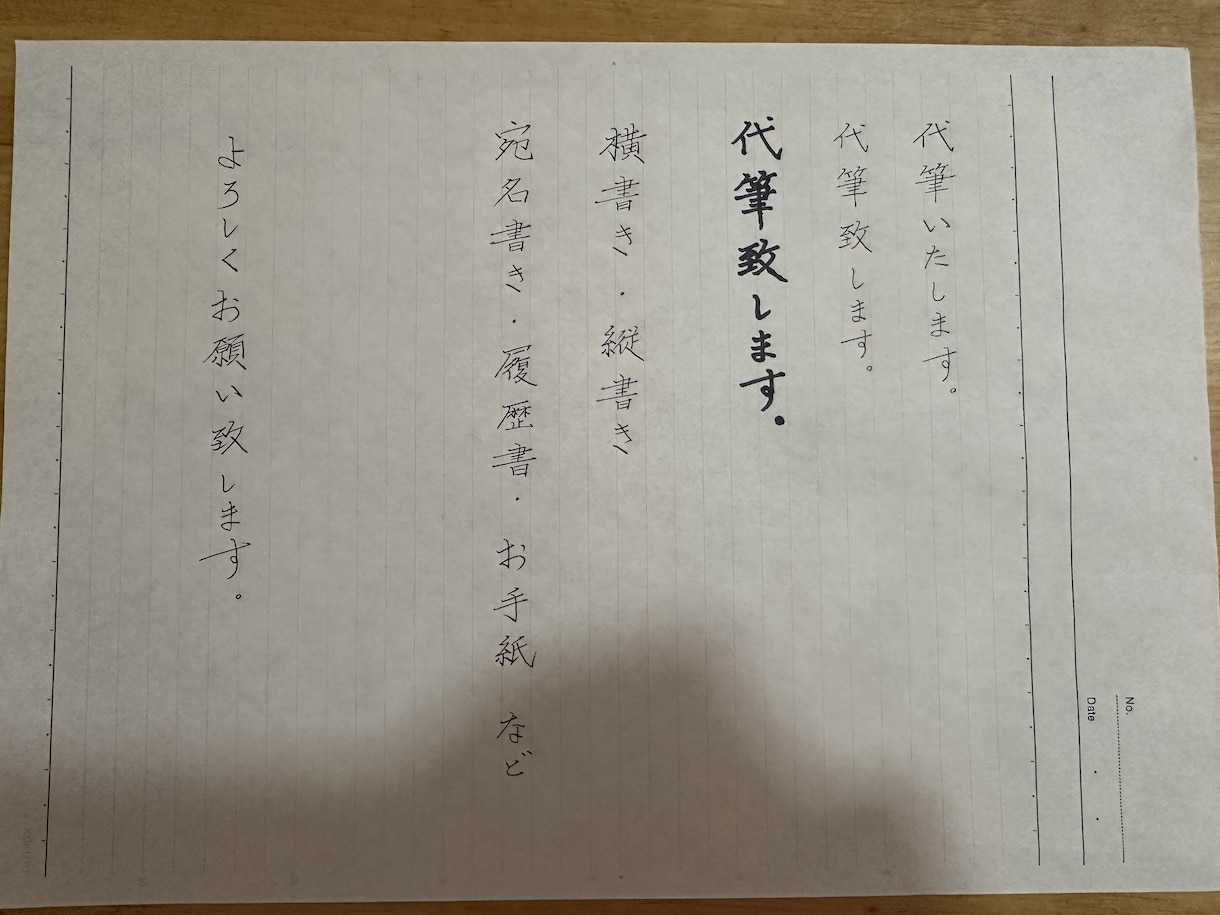 No.
Date
代筆いたします。
代筆致します。
代筆致します。
横書き・縦書き
宛名書き・履歴書・お手紙 など
よろしくお願い致します。